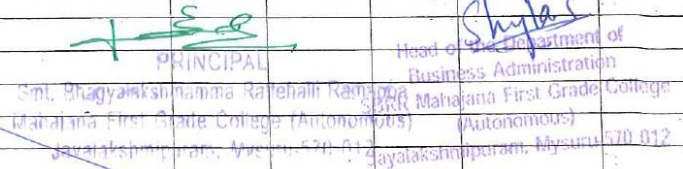 PRINCIPAL
Smt. Bhagyalakshmamma Rattehalli Ramappa
Mahajana First Grade College (Autonomous)
Jayalakshmipuram, Mysuru-570 012
Shylas
Head of the Department of
Business Administration
SBRR Mahajana First Grade College
(Autonomous)
Jayalakshmipuram, Mysuru-570 012